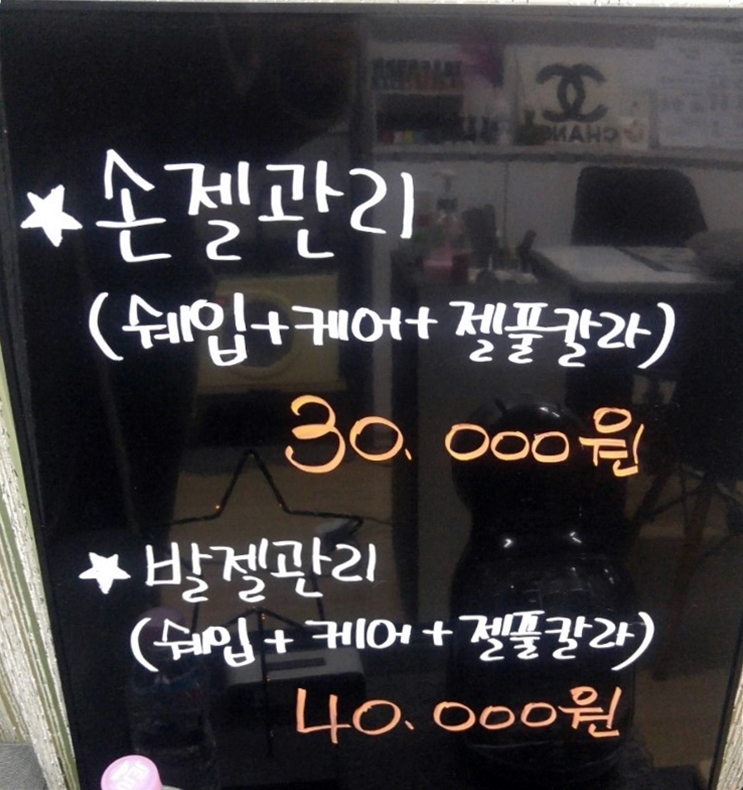 ★ 손젤관리
(쉐입+케어+젤풀칼라)
30.000원
★ 발젤관리
(쉐입+케어+젤풀칼라)
40.000원